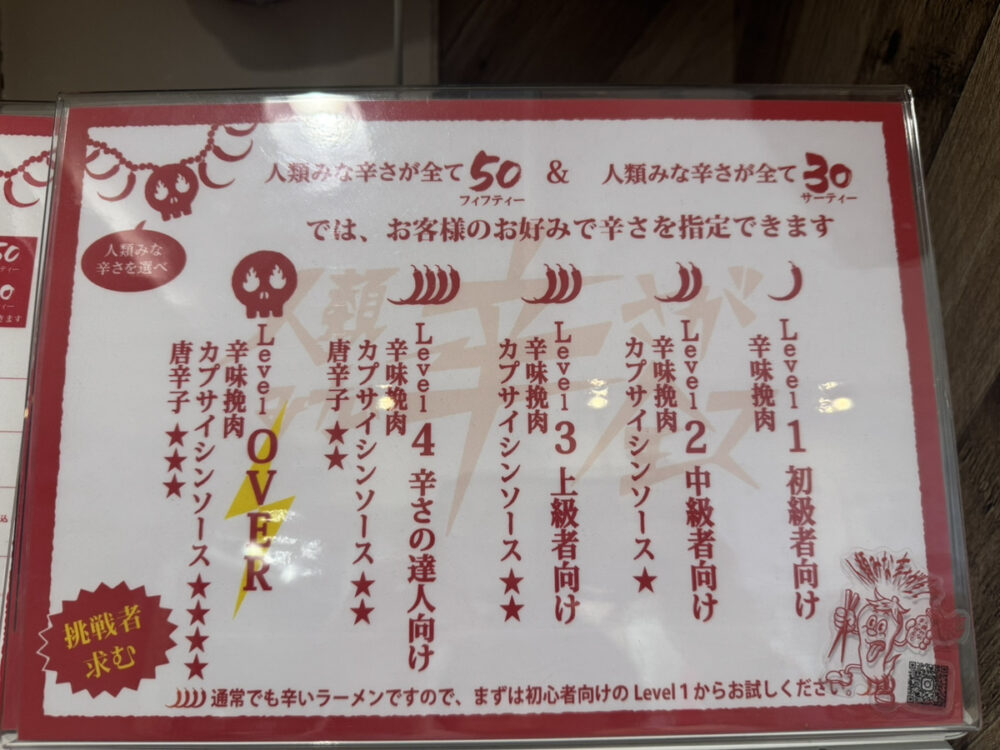 人類みな辛さが全て50 & 人類みな辛さが全て30
フィフティー
サーティー
では、お客様のお好みで辛さを指定できます
人類みな
辛さを選べ
Level 1 初級者向け
辛味挽肉
Level 2 中級者向け
辛味挽肉
カプサイシンソース★
Level 3 上級者向け
辛味挽肉
カプサイシンソース★★
Level 4 辛さの達人向け
辛味挽肉
カプサイシンソース★★
唐辛子★★
Level OVER
辛味挽肉
カプサイシンソース★★★★
唐辛子★★★
挑戦者
求む
通常でも辛いラーメンですので、まずは初心者向けの Level 1 からお試しください。